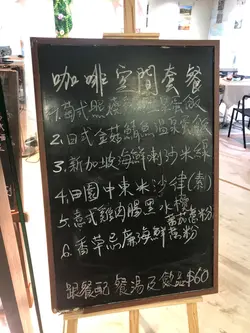 咖啡空間套餐
2.日式金菇鯖魚溫泉蛋飯
3.新加坡海鮮喇沙米線
4.田園中東米沙律(素)
5.意式雞肉腸黑水欖
蕃茄意粉
6.香草忌廉海鮮意粉
跟餐配 餐湯及飲品$60